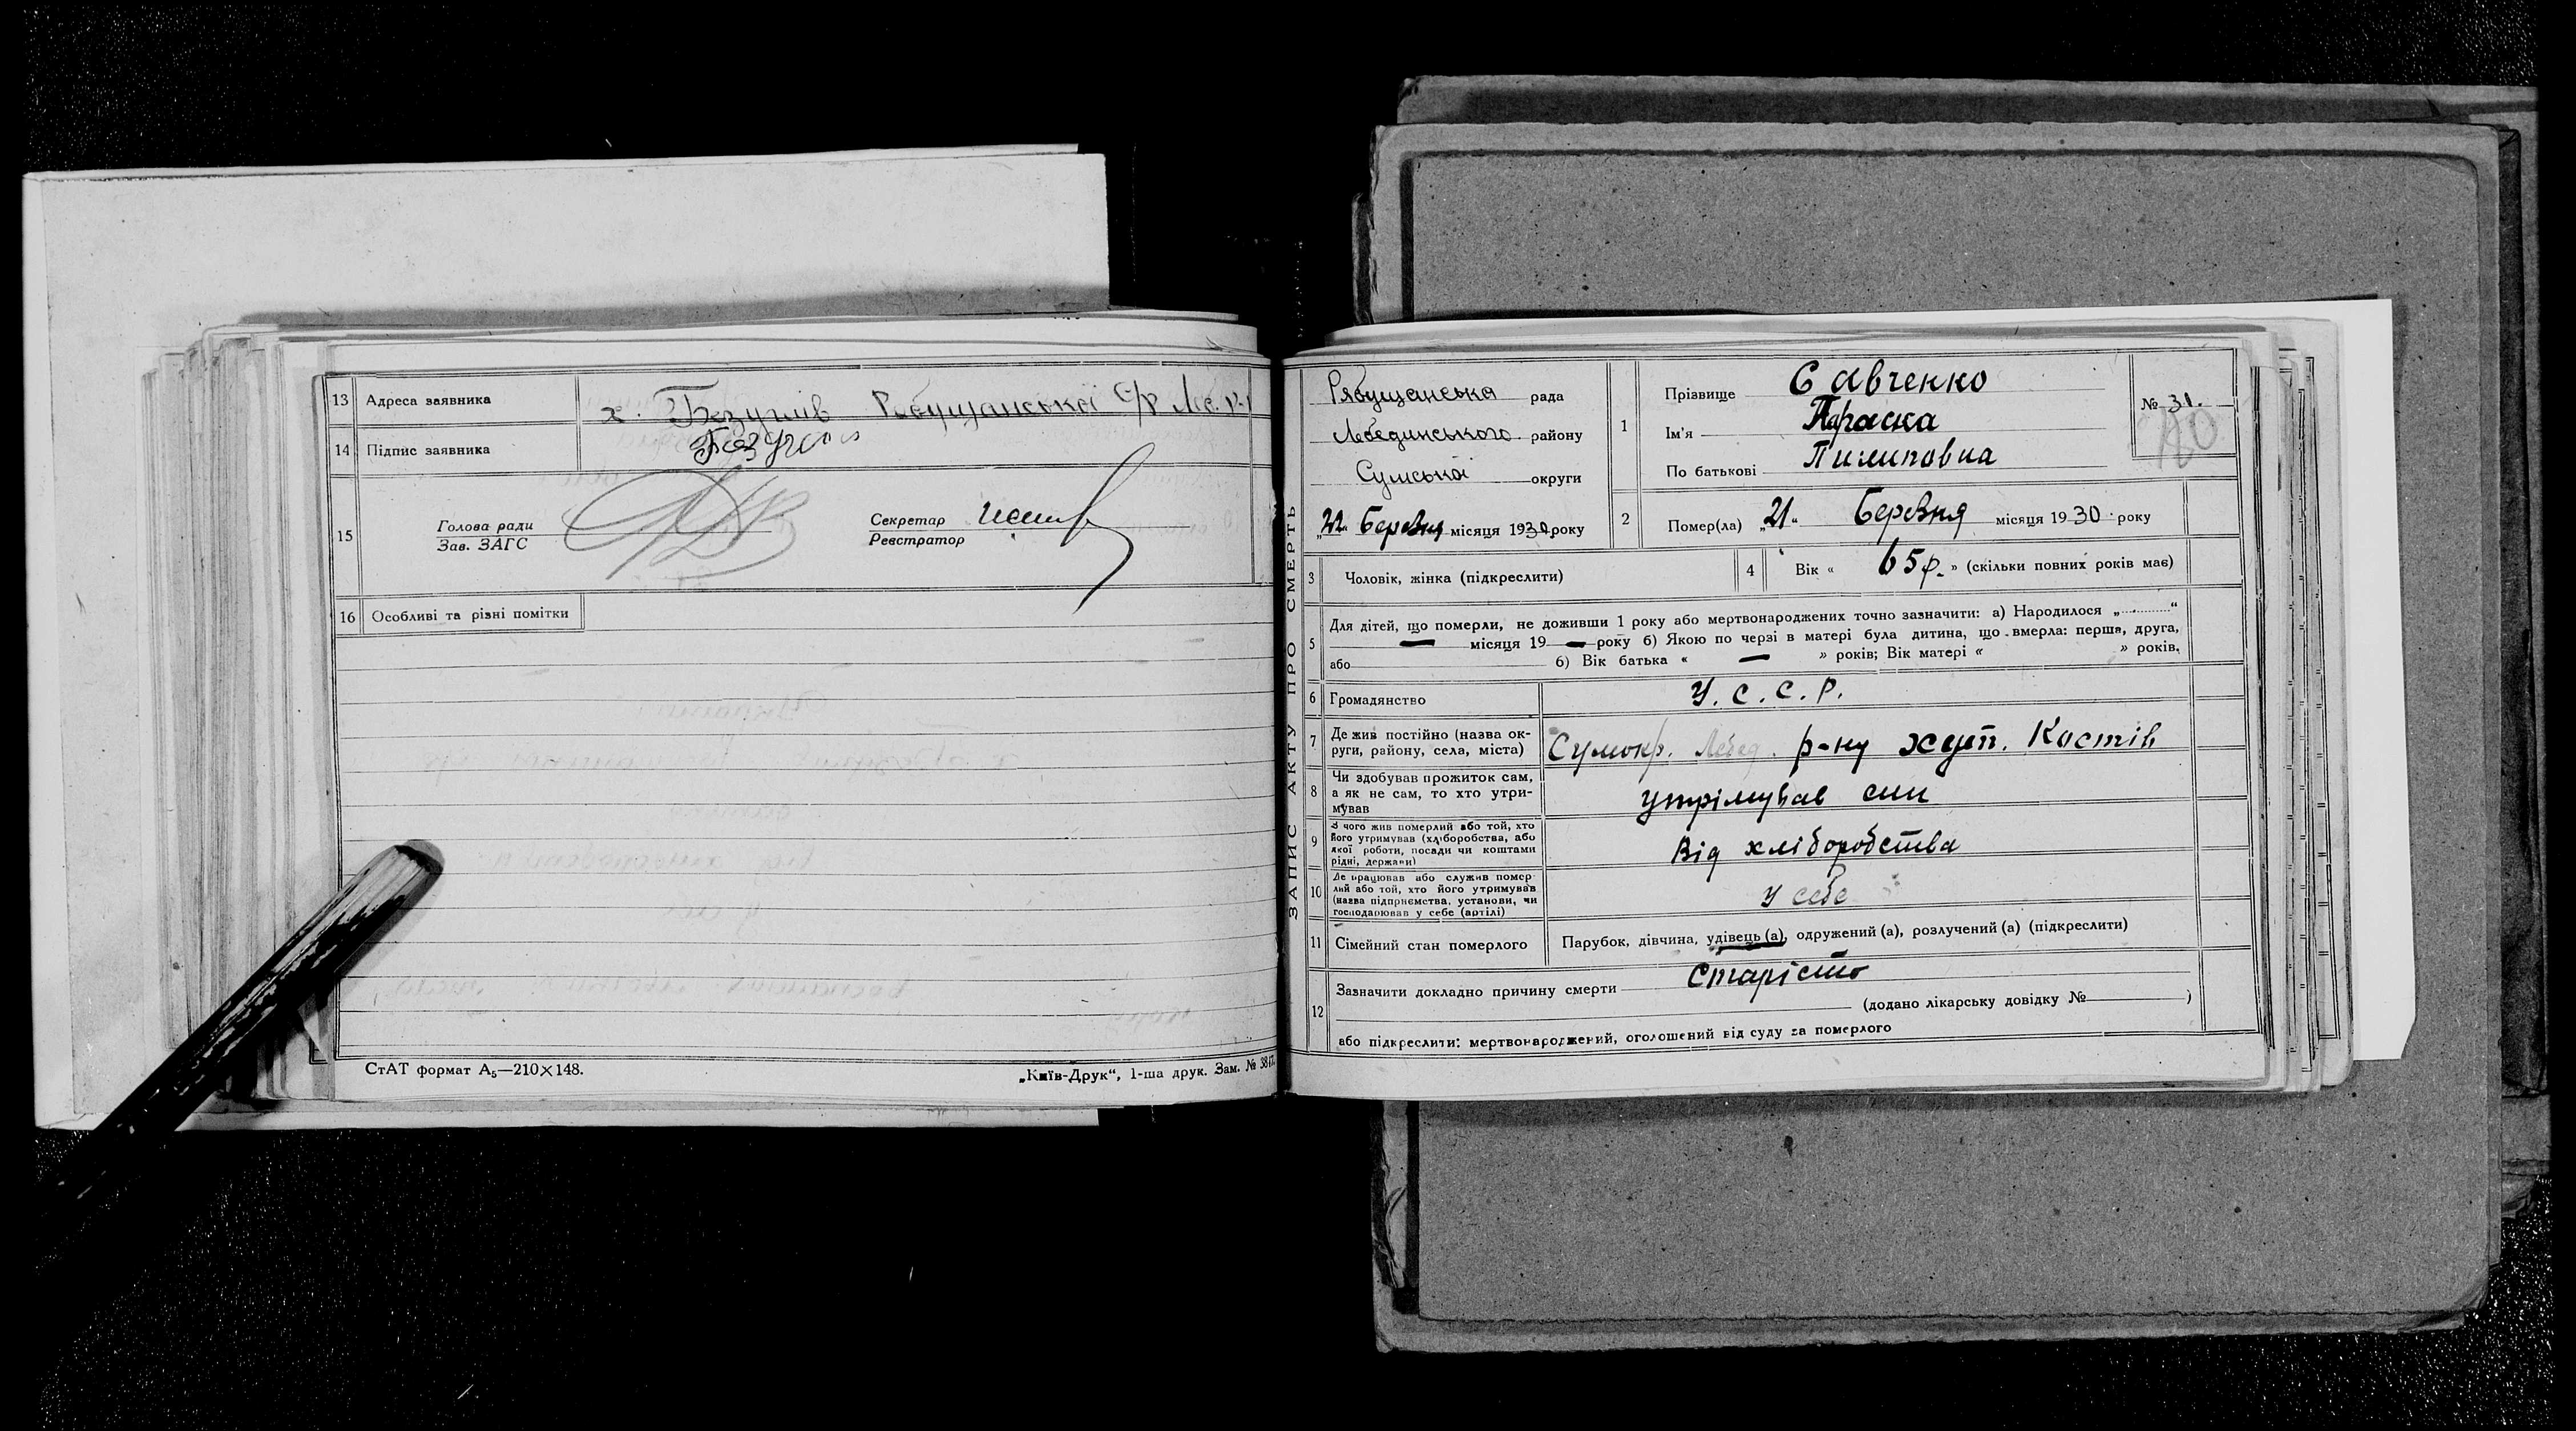 13 Адреса заявника х. Безуглів Рябущанської С/р Леб. р-н
14 Підпис заявника
15 Голова ради
Зав. ЗАГС
Секретар
Реєстратор
16 Особливі та різні помітки
СтАТ формат А5—210×148.
„Київ-Друк“, 1-ша друк. Зам. №
ЗАПИС АКТУ ПРО СМЕРТЬ
Рябущанська рада
Лебединського району
Сумської округи
„22“ Березня місяця 1930 року
1 Прізвище Савченко
Ім'я Параска
По батькові Пилиповна
№ 31.
2 Помер(ла) „21“ Березня місяця 1930 року
3 Чоловік, жінка (підкреслити)
4 Вік « 65 р. » (скільки повних років має)
5 Для дітей, що померли, не доживши 1 року або мертвонароджених точно зазначити: а) Народилося „..........“
— місяця 19 — року б) Якою по черзі в матері була дитина, що вмерла: перша, друга,
або б) Вік батька « — » років; Вік матері « » років.
6 Громадянство У. С. С. Р.
7 Де жив постійно (назва ок-
руги, району, села, міста) Сумокр. Лебед. р-ну хут. Костів
8 Чи здобував прожиток сам,
а як не сам, то хто утри-
мував утрімував син
9 З чого жив померлий або той, хто
його утримував (хліборобства, або
якої роботи, посади чи коштами
рідні, держави) Від хліборобства
10 Де працював або служив помер-
лий або той, хто його утримував
(назва підприємства, установи, чи
господарював у себе (артілі) у себе
11 Сімейний стан померлого Парубок, дівчина, удівець (а), одружений (а), розлучений (а) (підкреслити)
12 Зазначити докладно причину смерти Старість
(додано лікарську довідку № )
або підкреслити: мертвонароджений, оголошений від суду за померлого